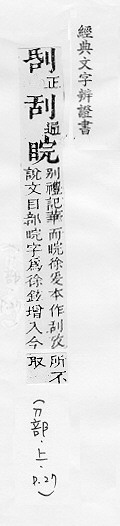 經典文字辨證書
正
刮通
睆別禮記華而睆徐爰本作刮攷
說文目部睆字爲徐鉉增入今
所不
取
(刀部·上·P.27)